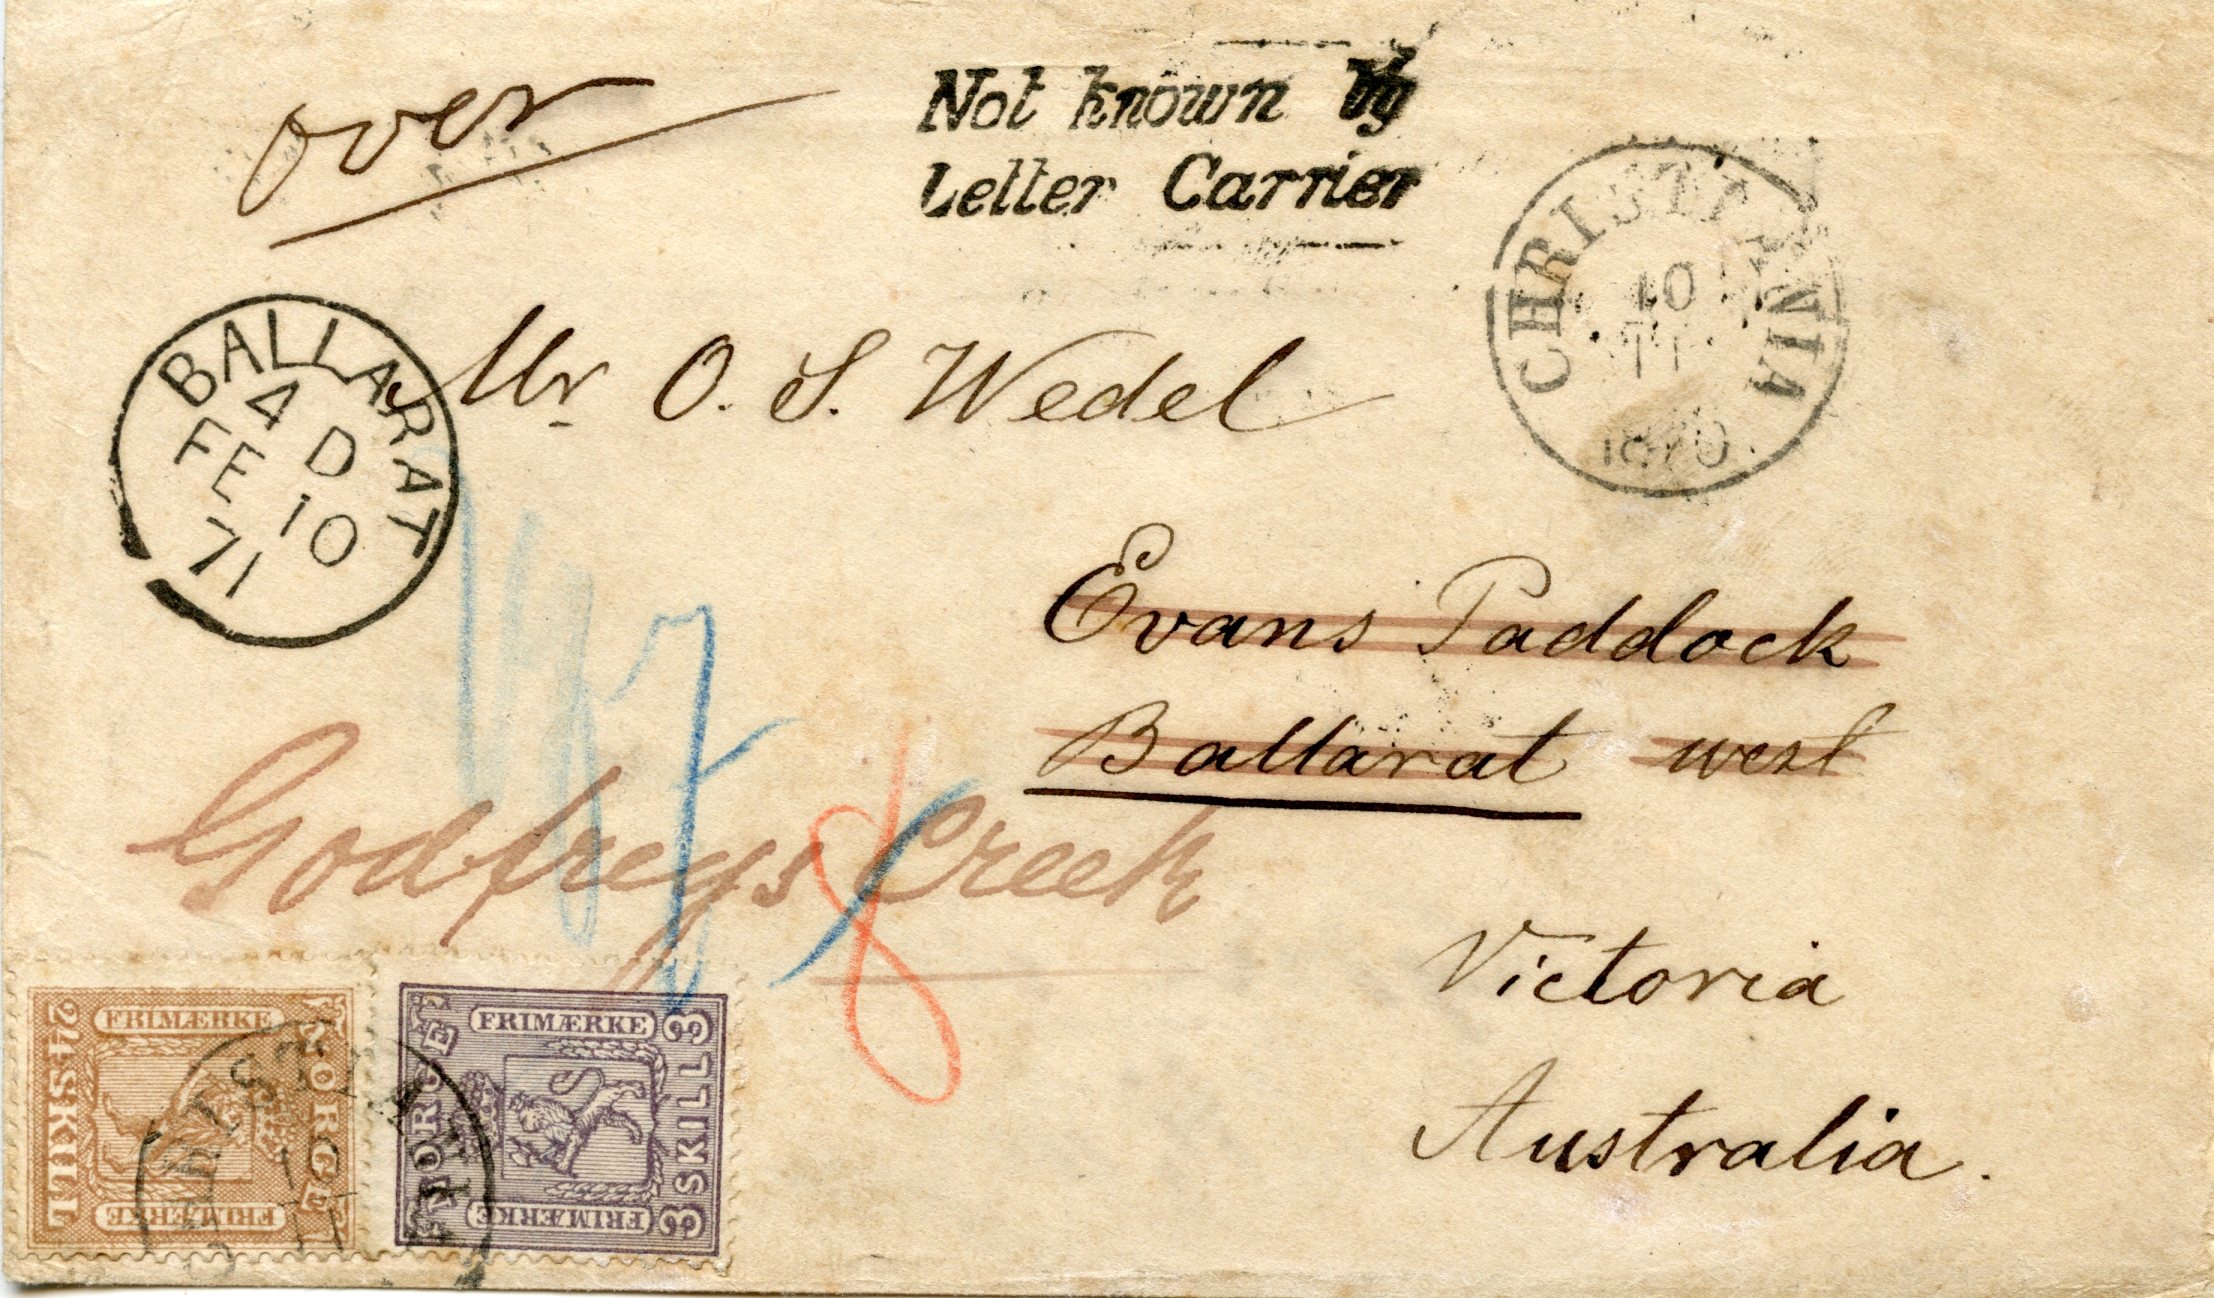 over
Not known by
Letter Carrier
CHRISTIANIA
10
11
1870
BALLARAT
4 D
FE 10
71
Mr O. S. Wedel
Evans Paddock
Ballarat west
Godfreys Creek
8
Victoria
Australia.
NORGE
FRIMÆRKE
24 SKILL
FRIMÆRKE
NORGE
FRIMÆRKE
3 SKILL 3
FRIMÆRKE